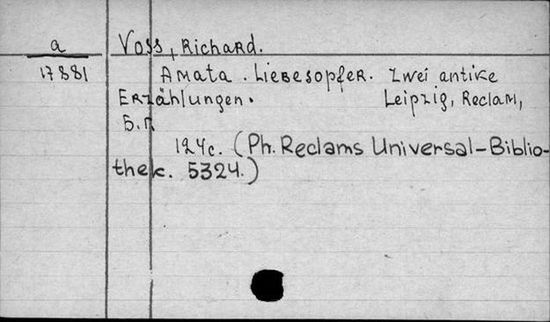 a Voss, Richard.
17881 Amata. Liebesopfer. Zwei antike
Erzählungen. Leipzig, Reclam,
Б.г.
124c. (Ph. Reclams Universal-Biblio-
thek. 5324.)